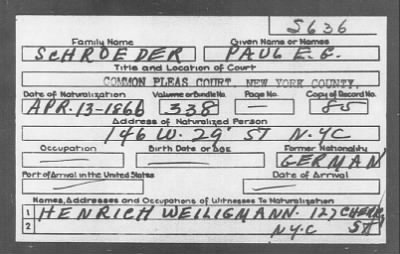 S636
Family Name Given Name or Names
SCHROEDER PAUL E. G.
Title and Location of Court
COMMON PLEAS COURT, NEW YORK COUNTY.
Date of Naturalization Volume or Bundle No. Page No. Copy of Record No.
APR. 13-1866 338 — 85
Address of Naturalized Person
146 W. 29" ST N.Y.C
Occupation Birth Date or Age Former Nationality
— — GERMAN
Port of Arrival in the United States Date of Arrival
— —
Names, Addresses and Occupations of Witnesses To Naturalization
1 HENRICH WEILIGMANN. 127 CHERRY
2 N.Y.C ST